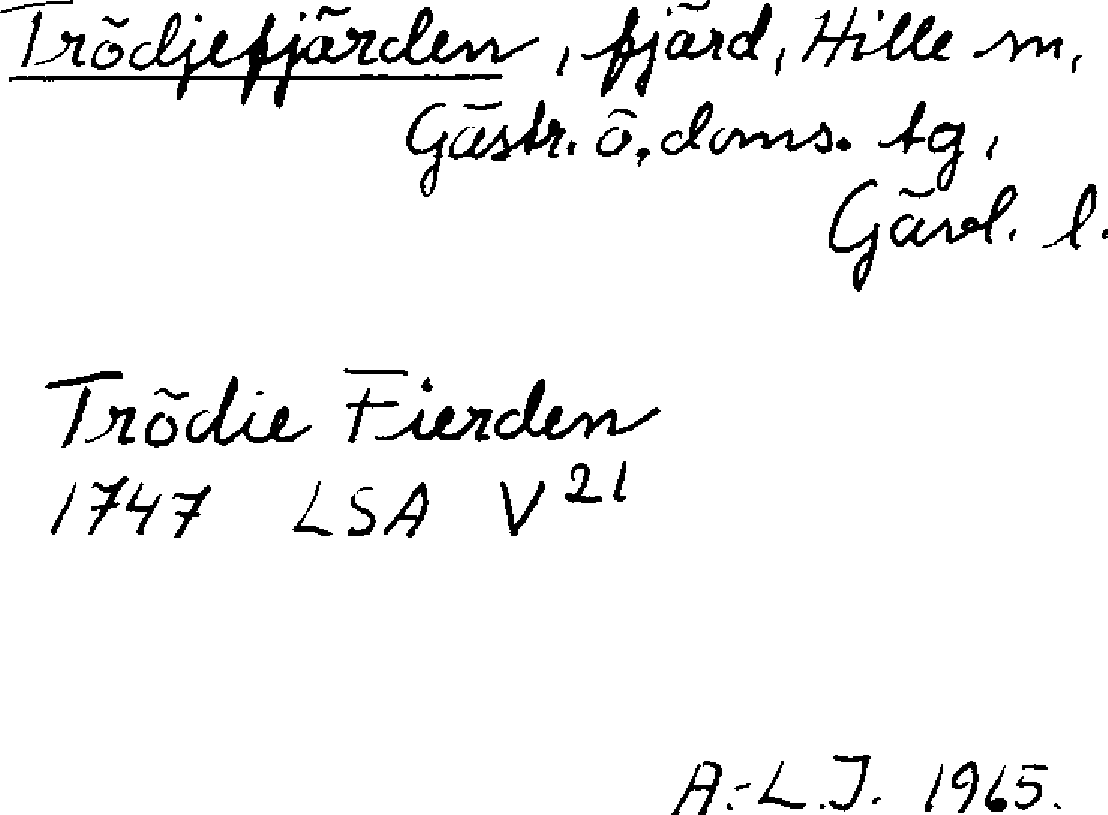 Trödjefjärden, fjärd, Hille sn,
Gästr. ö. doms. tg,
Gävl. l.
Trödie Fierden
1747 LSA V²¹
A.-L.J. 1965.